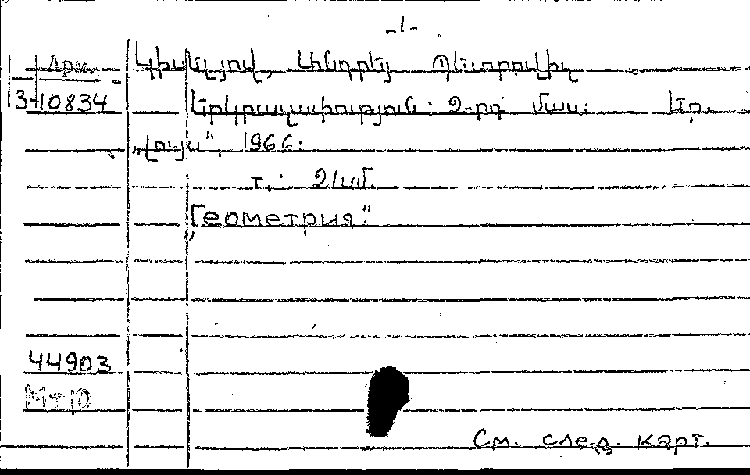 -1-
Արմ. Կիսելյով, Անդրեյ Պետրովիչ
3-10834 Երկրաչափություն: 2-րդ մաս: Եր.
„Լույս", 1966:
"Геометрия"
44903
См. след. карт.